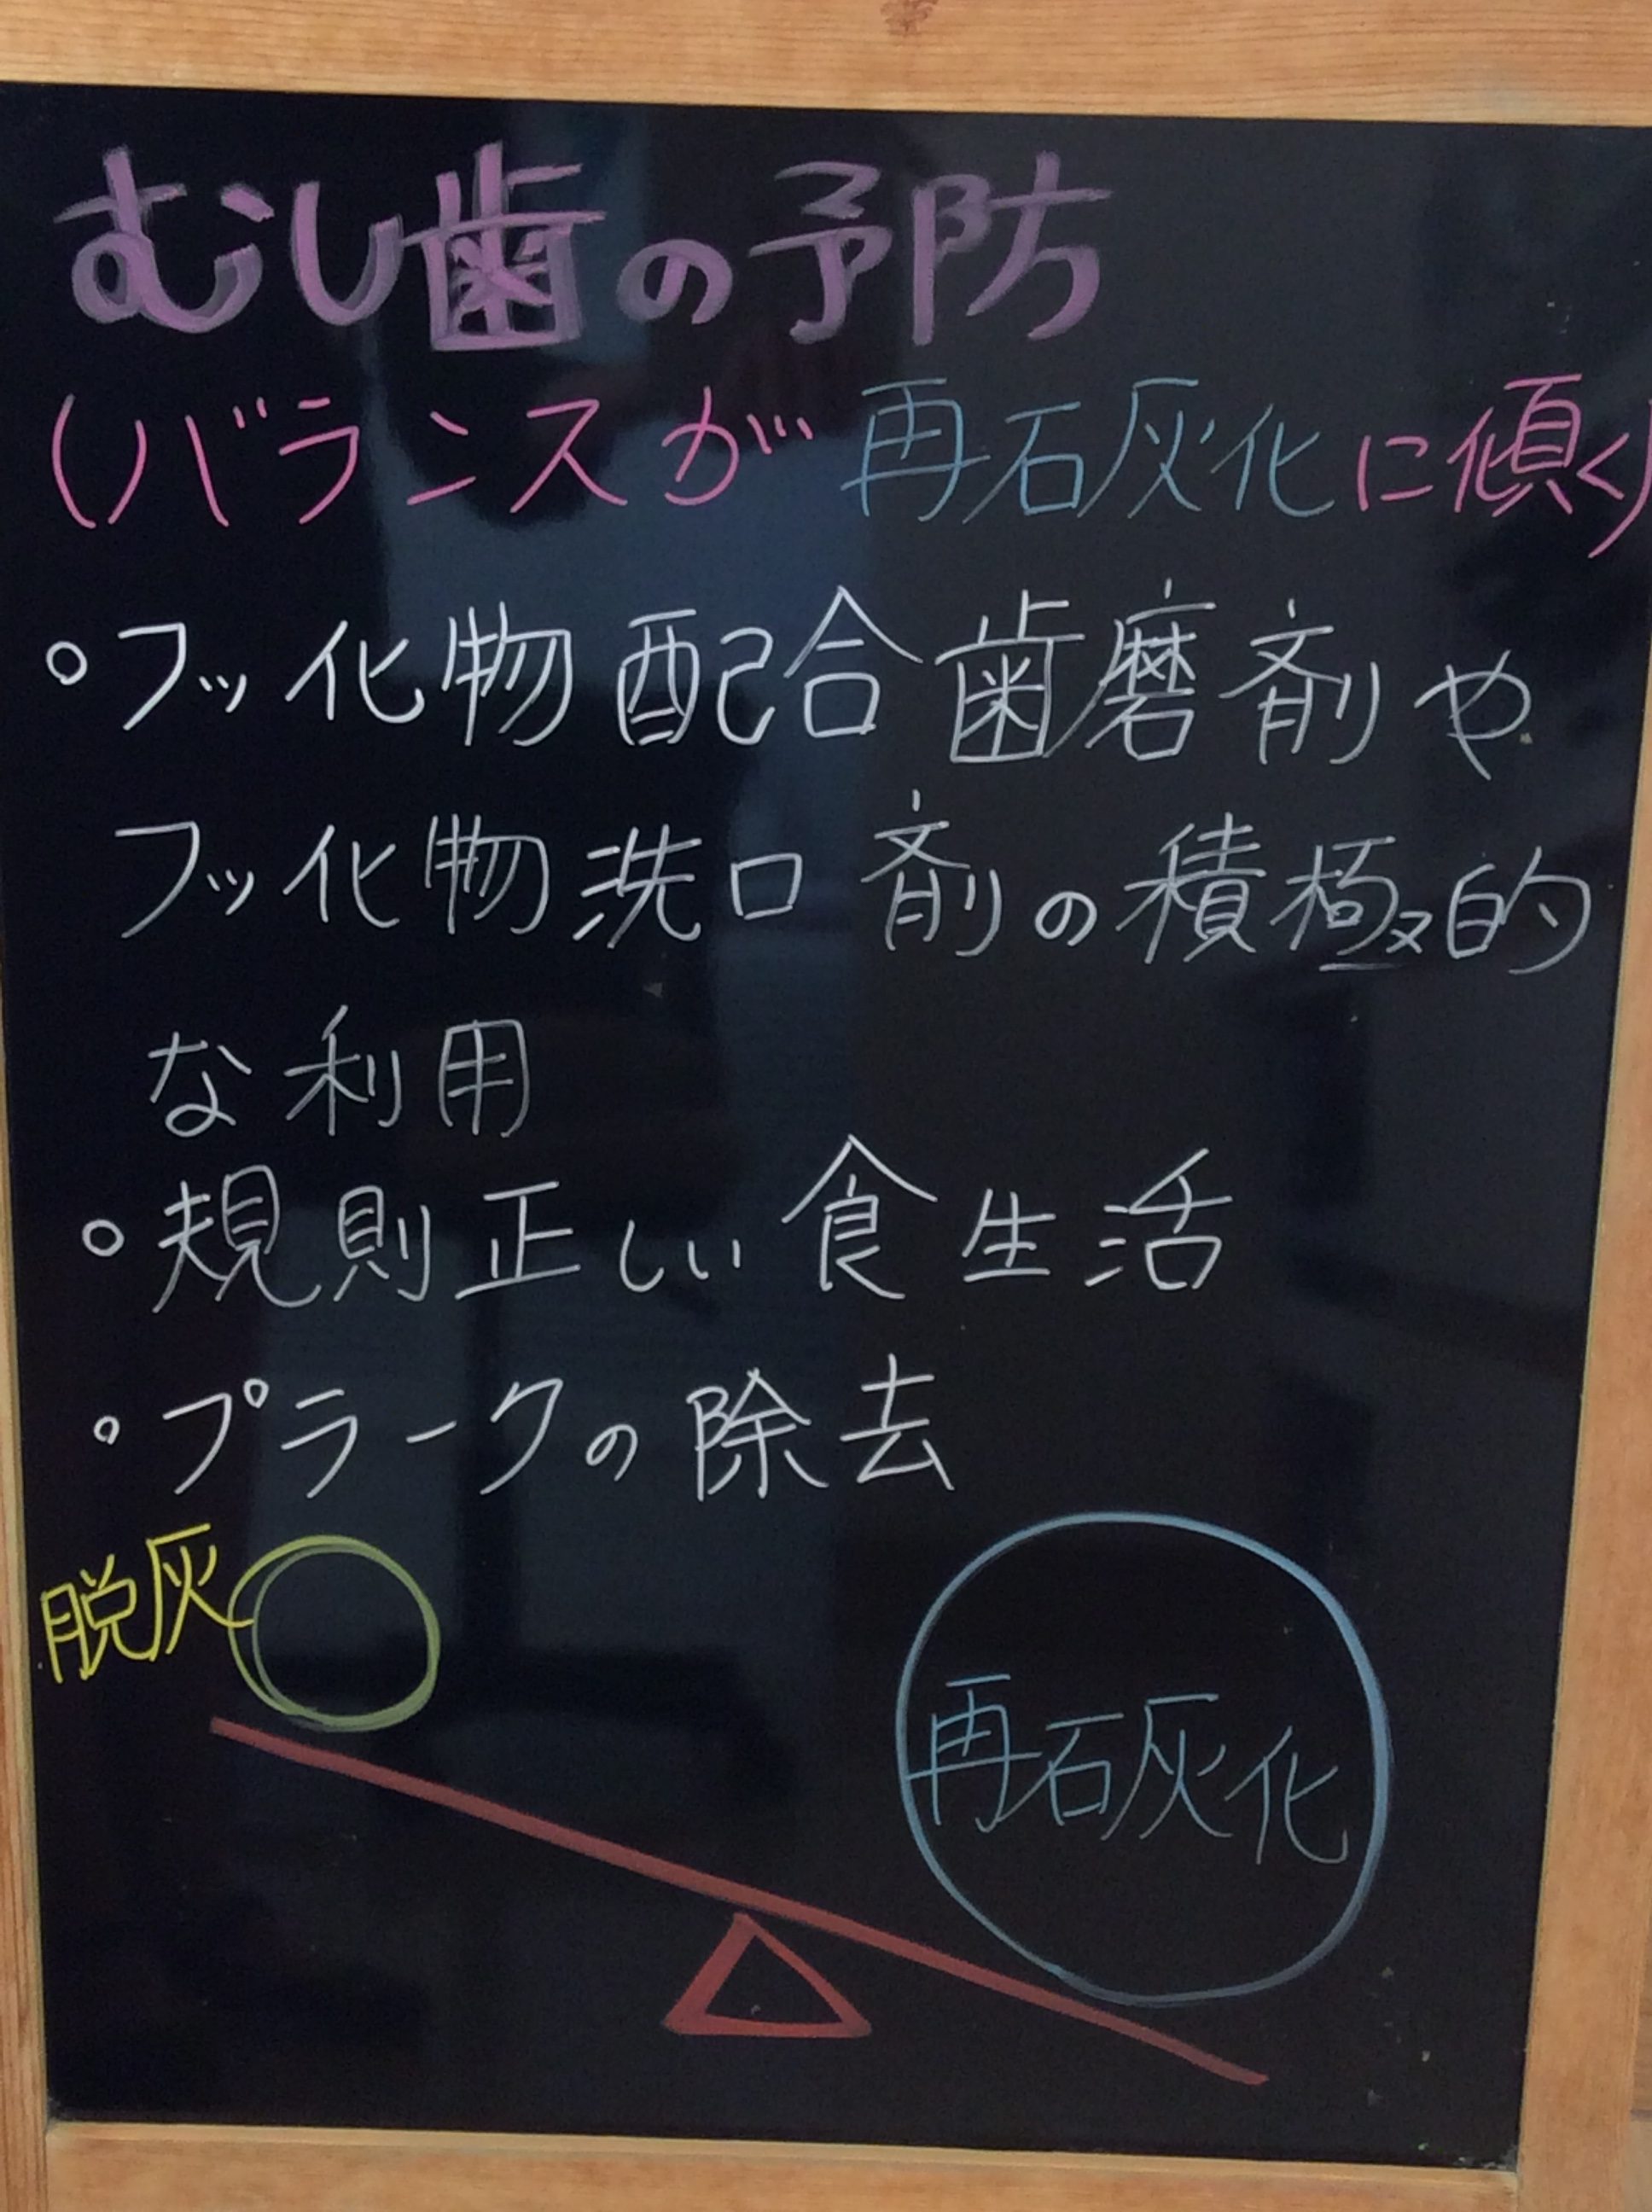 むし歯の予防
(バランスが再石灰化に傾く)
○フッ化物配合歯磨剤や
フッ化物洗口剤の積極的
な利用
○規則正しい食生活
○プラークの除去
脱灰
再石灰化